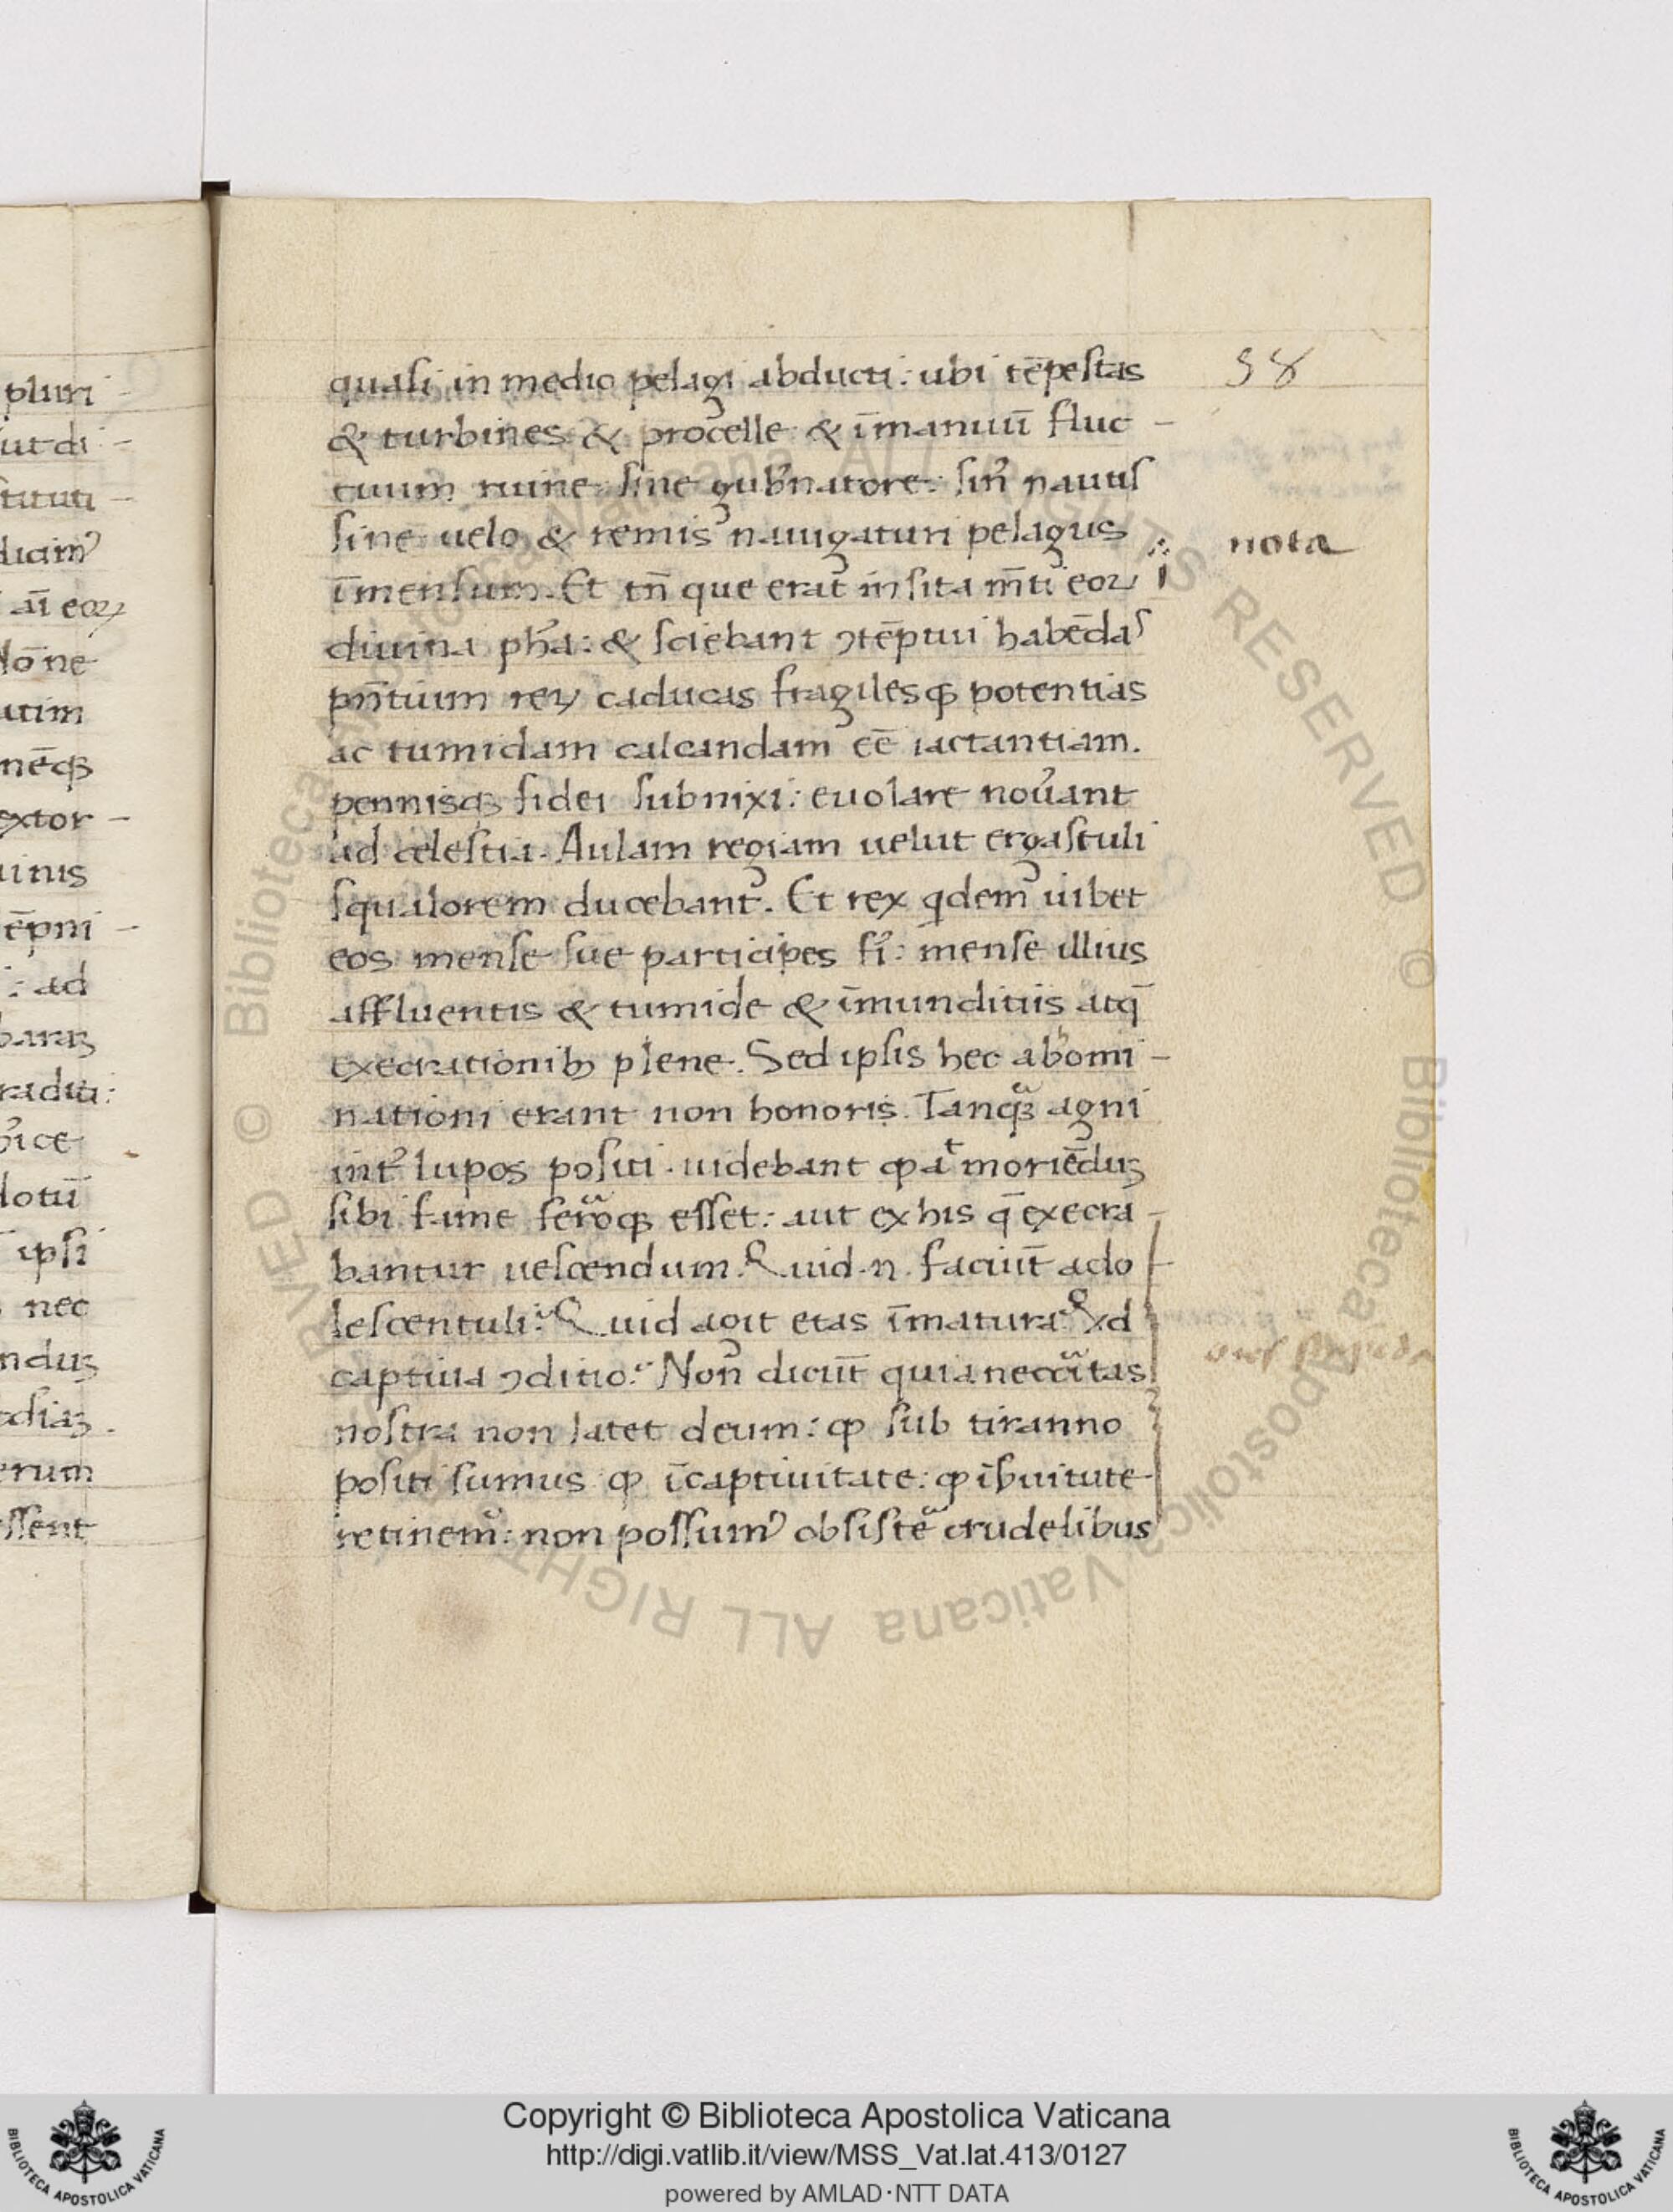 pluri-
ut di-
stituti-
ducim᷒
aī eoꝝ
dōne
utim
nēqꝫ
extor-
uinis
tēpni-
: ad
baraꝫ
radici:
ice
dotū
ipsi
nec
nduꝫ
ediaꝫ.
erum
ssent
58
quasi in medio pelagi abducti: ubi tēpestas
& turbines & procelle & īmaniuū fluc-
tuum ruine sine gub̓natore: sin̄ nautis
sine uelo & remis nauigaturi pelagus
īmensum. Et tn̄ que erat insita m̄ti eoꝝ
diuina ph̓a: & sciebant ꝯtēptui habēdas
pn̄tium reꝝ caducas fragilesqꝫ potentias
ac tumidam calcandam eē iactantiam.
pennisqꝫ fidei subnixi: euolare nou̓ant
ad celestia. Aulam regiam uelut ergastuli
squalorem ducebant. Et rex qdem iubet
eos mense sue participes fi̓: mense illius
affluentis & tumide & īmunditiis atq̄
execrationibꝫ plene. Sed ipsis hec abomi-
nationi erant non honoris. Tanqꝫᷓ agni
int̓ lupos positi. uidebant ꝙ aᵗ moriēduꝫ
sibi fame feroqꝫ esset: aut ex his q̄ execra-
bantur uescendum. Quid .n. faciūt ado-
lescentuli? Quid agit etas īmatura? Qd
captiua ꝯditio? Non dicūt quia neccītas
nostra non latet deum: ꝙ sub tiranno
positi sumus ꝙ ī captiuitate: ꝙ ī ẜuitute
retinem᷒: non possum᷒ obsistē crudelibus
nota
Copyright © Biblioteca Apostolica Vaticana
http://digi.vatlib.it/view/MSS_Vat.lat.413/0127
powered by AMLAD·NTT DATA
BIBLIOTECA APOSTOLICA VATICANA
BIBLIOTECA APOSTOLICA VATICANA
© Biblioteca Apostolica Vaticana ALL RIGHTS RESERVED © Biblioteca Apostolica Vaticana ALL RIGHTS RESERVED